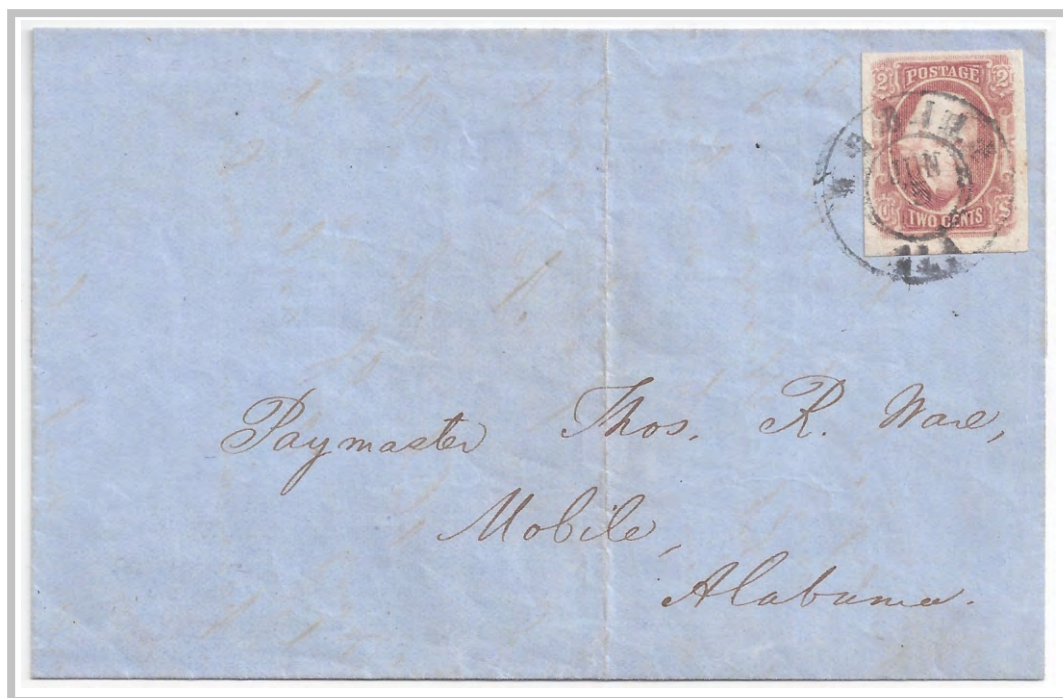 2 POSTAGE 2
TWO CENTS
JUN
Paymaster Thos. R. Ware,
Mobile,
Alabama.